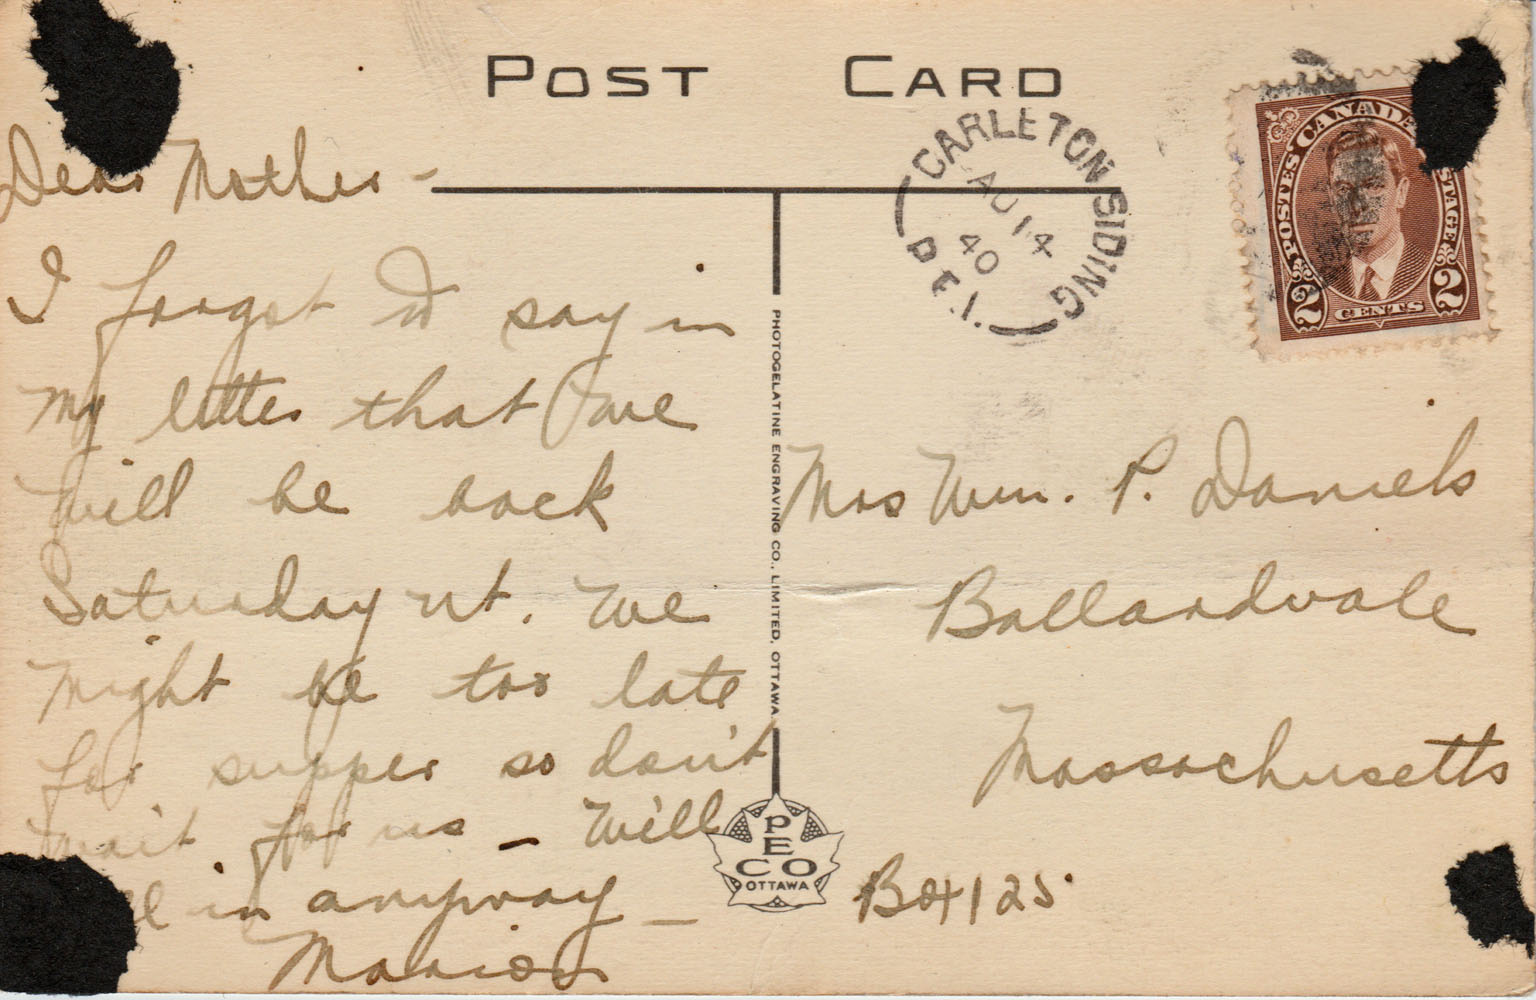 POST CARD
Dear Mother -
I forgot to say in
my letter that we
will be back
Saturday nt. We
might be too late
for supper so don't
wait for us - Will
in anyway -
Marion
CARLETON SIDING
AU 14
40
P.E.I.
POSTES CANADA POSTAGE
2 CENTS 2
PHOTOGELATINE ENGRAVING CO., LIMITED, OTTAWA
PECO
OTTAWA
Mrs Wm. P. Daniels
Ballardvale
Massachusetts